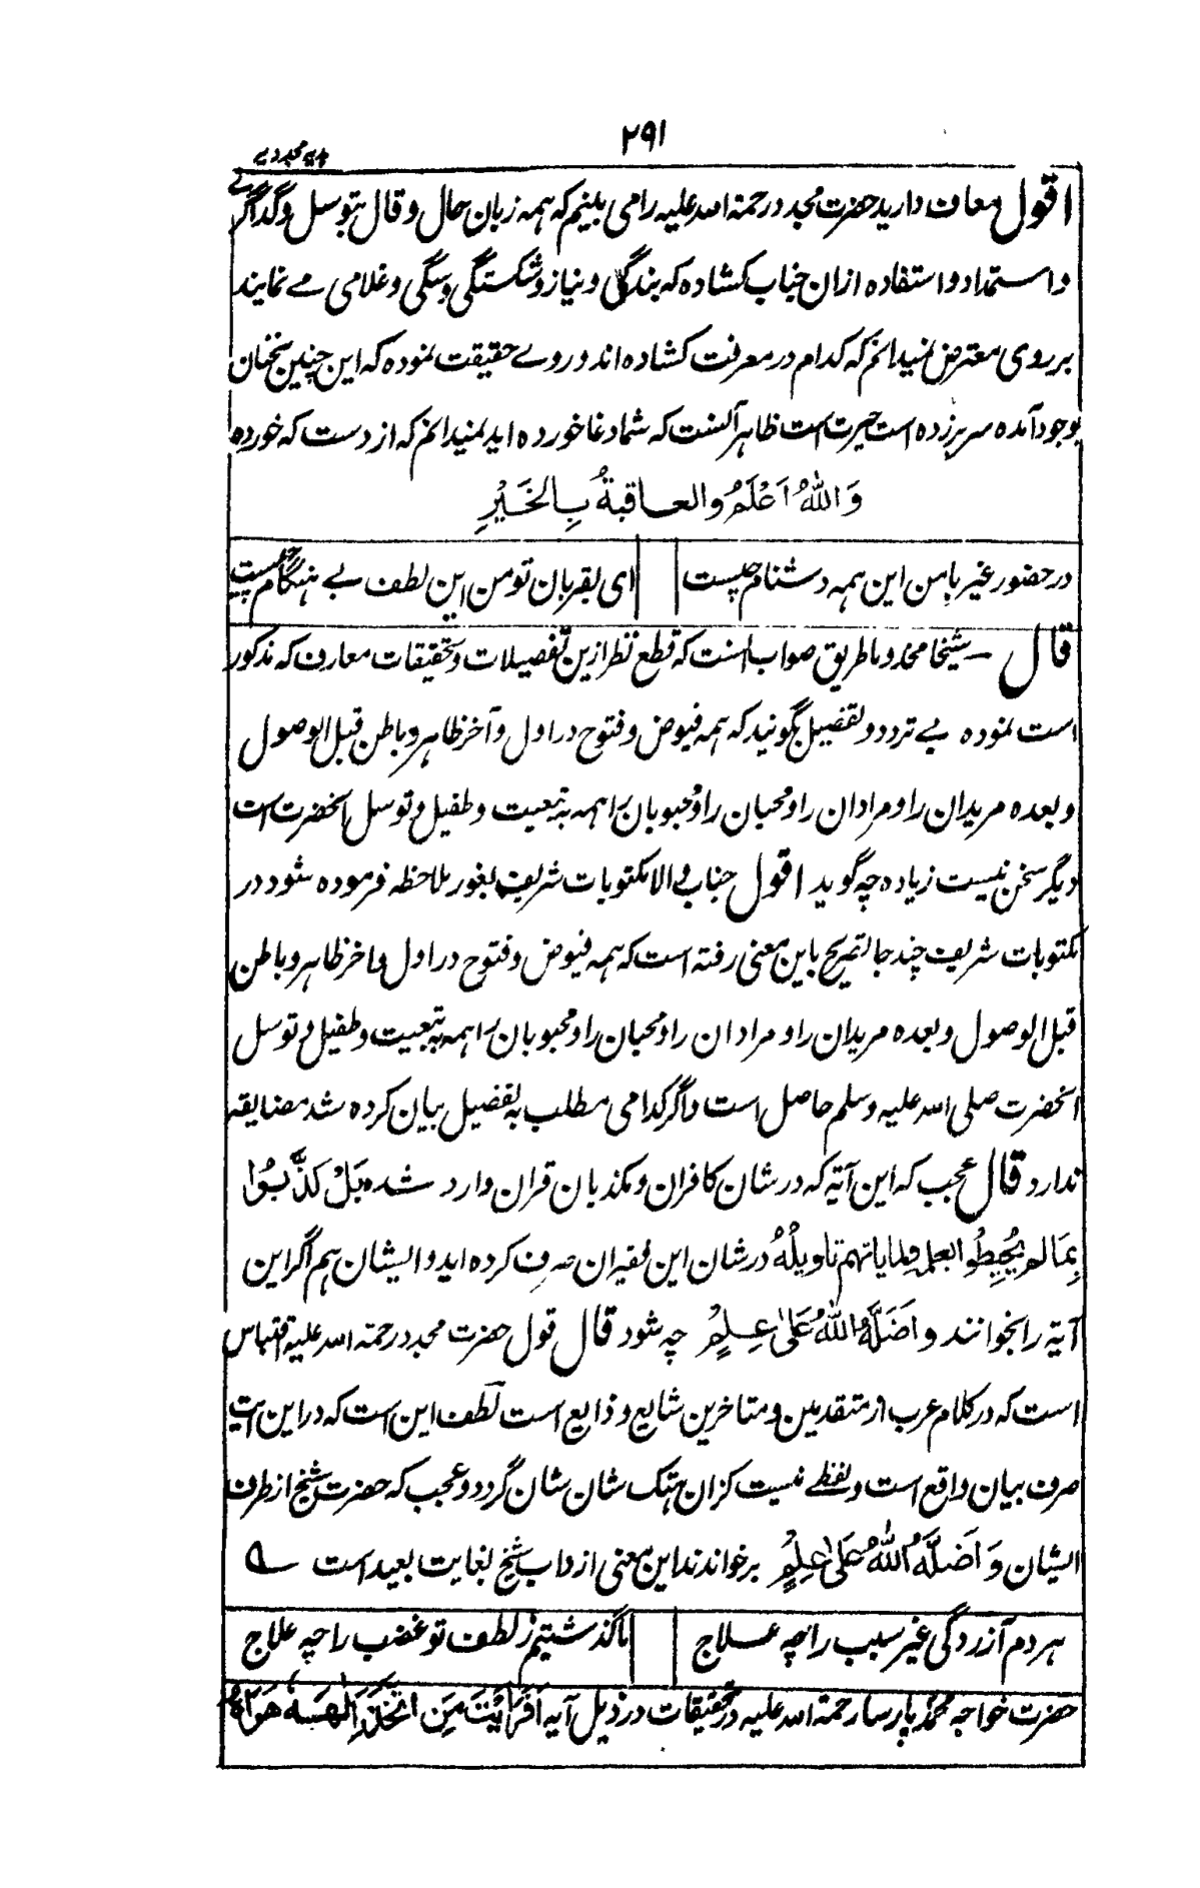 ۲۹۱
ہدیہ مجددیہ
اقول معاف دارید حضرت مجدد رحمة اللہ علیہ را می بینیم کہ ہمہ زبان حال و قال بتوسل و گداگرے
و استمداد و استفادہ ازان جناب کشادہ کہ بندگی و نیاز و شکستگی و سگی و غلامی مے نمایند
بر روی معترض نمیدانم کہ کدام در معرفت کشادہ اند و روے حقیقت نمودہ کہ این چنین سخنان
بوجود آمدہ سر بر زدہ است حیرت است ظاہر آنست کہ شما دغا خوردہ اید نمیدانم کہ از دست کہ خوردہ
وَاللهُ اَعْلَمُ والعاقبةُ بِالخَيْرِ
در حضور غیر با من این ہمہ دشنام چیست ای بقربان تو من این لطف بے ہنگام چیست
قال - شیخا مخدوما طریق صواب آنست کہ قطع نظر ازین تفصیلات و تحقیقات معارف کہ مذکور
است نمودہ بے تردد و تفصیل بگویند کہ ہمہ فیوض و فتوح در اول و آخر ظاہر و باطن قبل الوصول
و بعدہ مریدان را و مرادان را و محبان را و محبوبان را ہمہ بہ تبعیت و طفیل و توسل آنحضرت است
دیگر سخن نیست زیادہ چہ گوید اقول جناب والا مکتوبات شریف بغور ملاحظہ فرمودہ شود در
مکتوبات شریف چند جا تصریح باین معنی رفتہ است کہ ہمہ فیوض و فتوح در اول و آخر ظاہر و باطن
قبل الوصول و بعدہ مریدان را و مرادان را و محبان را و محبوبان را ہمہ بہ تبعیت و طفیل و توسل
آنحضرت صلی اللہ علیہ وسلم حاصل است و اگر کدامی مطلب بہ تفصیل بیان کردہ شد مضایقہ
ندارد قال عجب کہ این آیة کہ در شان کافران و مکذبان قران وارد شدہ بَلْ كَذَّبُوا
بِمَا لم يُحِيطُوا بعلمه ولما ياتهم تاويلُهُ در شان این فقیران صرف کردہ اید و ایشان ہم اگر این
آیة را بخوانند و اَضَلَّهُ اللهُ عَلىٰ عِلمٍ چہ شود قال قول حضرت مجدد رحمة اللہ علیہ اقتباس
است کہ در کلام عرب از متقدمین و متاخرین شایع و ذایع است لطف این است کہ در این آیت
صرف بیان واقع است و لفظے نیست کزان ہتک شان شان گردد و عجب کہ حضرت شیخ از طرف
ایشان وَ اَضَلَّهُ اللهُ عَلىٰ عِلمٍ بر خواندند این معنی از داب شیخ بغایت بعید است ؎
ہر دم آزردگی غیر سبب را چہ علاج ما گذشتیم ز لطف تو غضب را چہ علاج
حضرت خواجہ محمد پارسا رحمة اللہ علیہ در تحقیقات در ذیل آیہ اَفَرَاَيْتَ مَن اتخذ الٰهَهُ هَوَاهُ